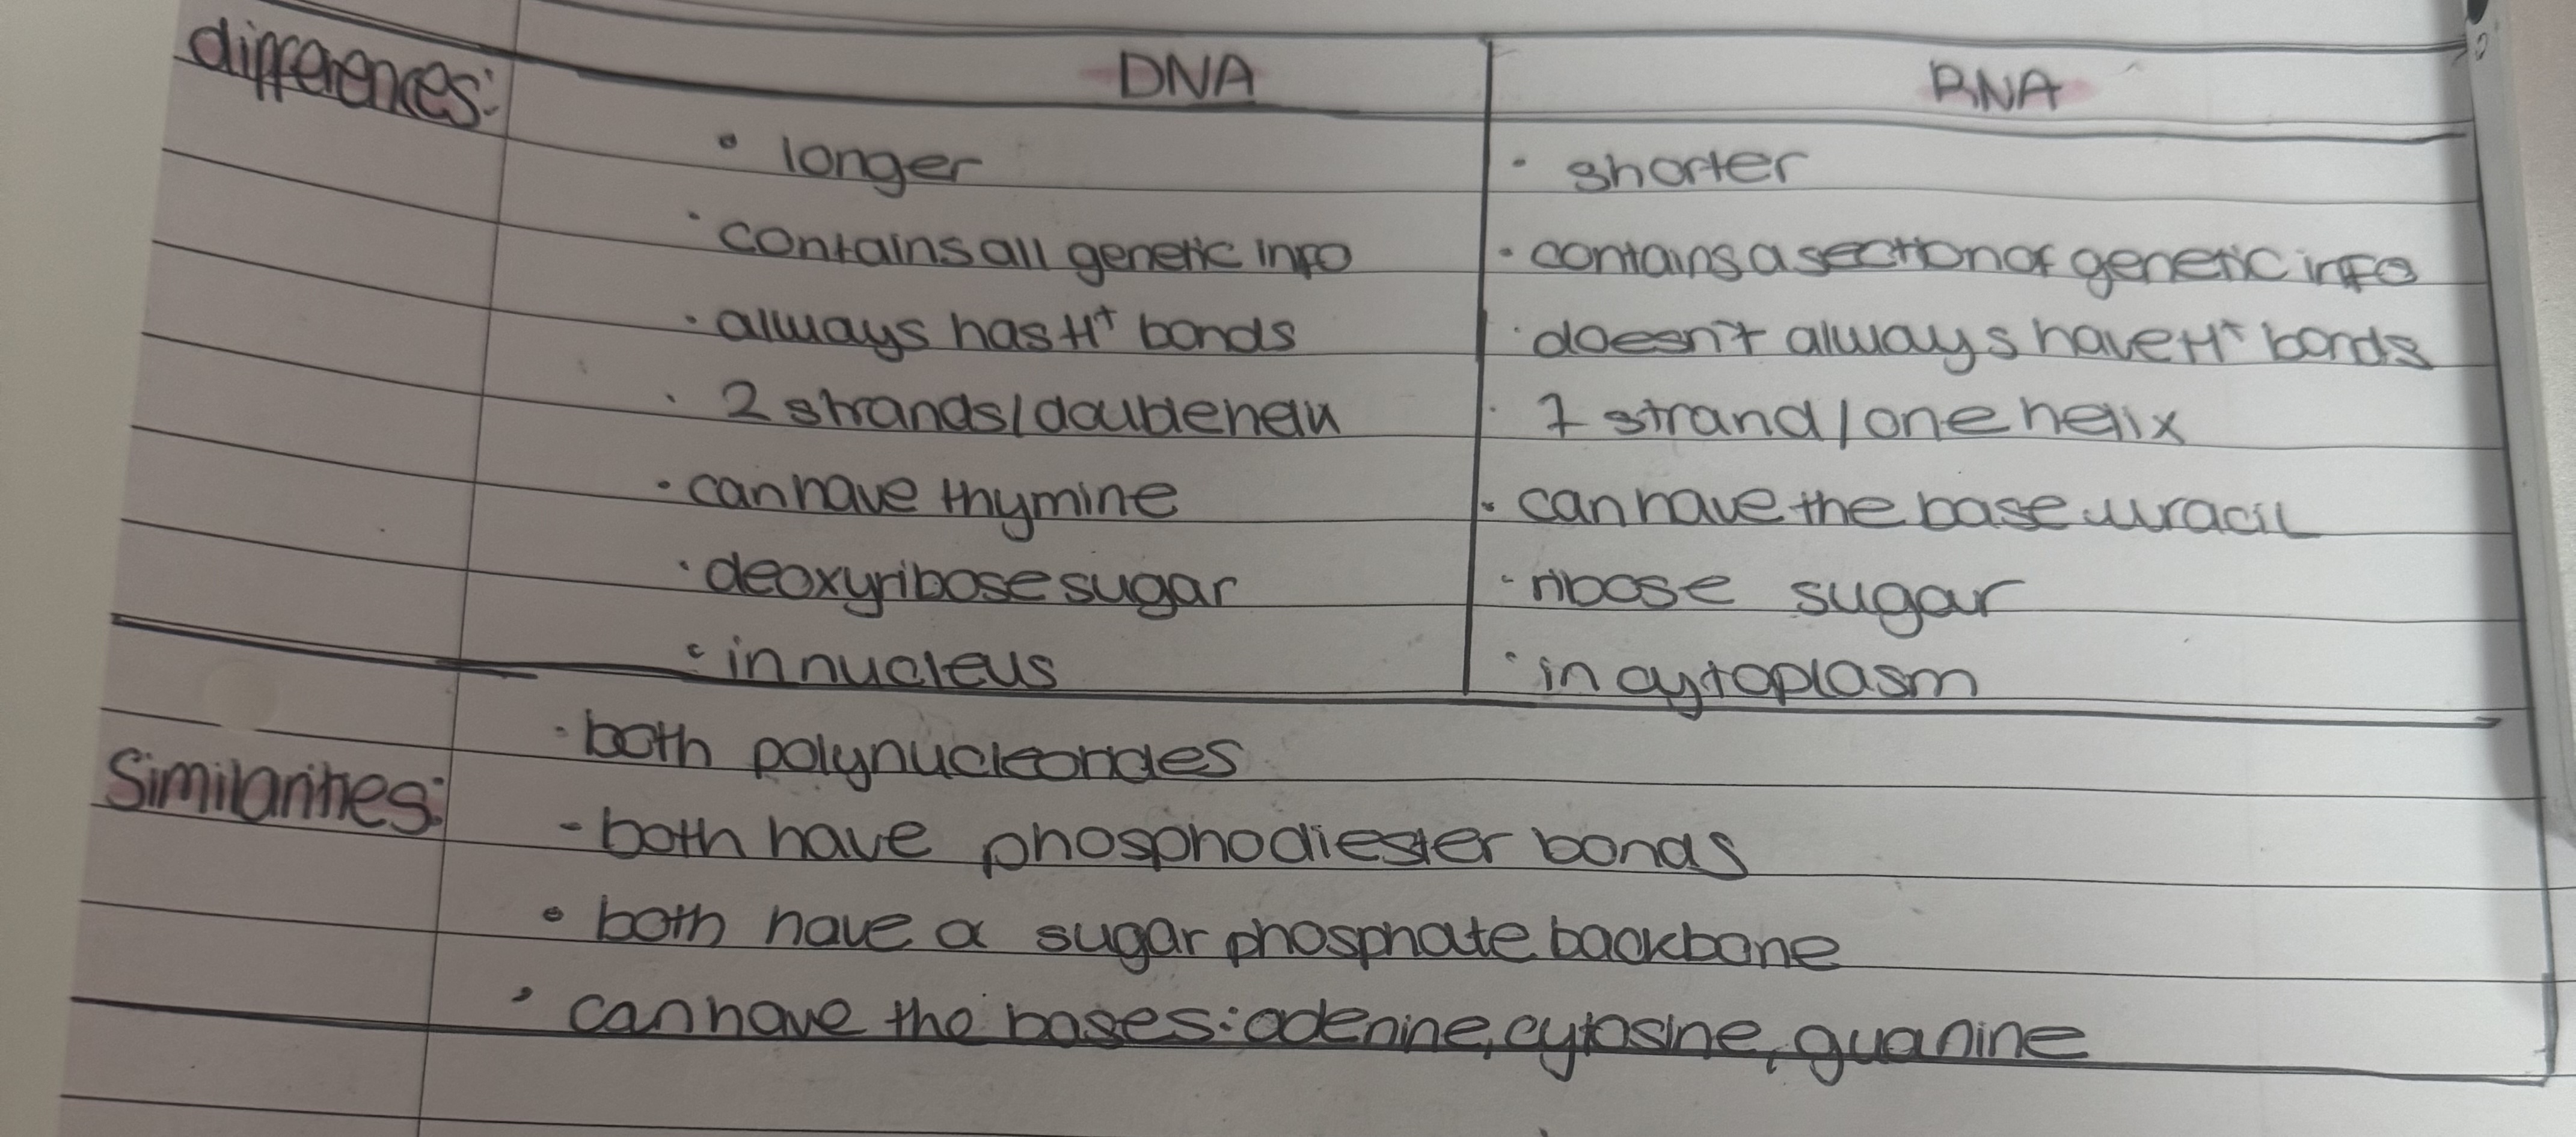 differences:
DNA
RNA
• longer
• shorter
• contains all genetic info
• contains a section of genetic info
• always has H⁺ bonds
• doesn't always have H⁺ bonds
• 2 strands/double helix
• 1 strand/one helix
• can have thymine
• can have the base uracil
• deoxyribose sugar
- ribose sugar
• in nucleus
• in cytoplasm
Similarities:
• both polynucleotides
- both have phosphodiester bonds
• both have a sugar phosphate backbone
• can have the bases: adenine, cytosine, guanine